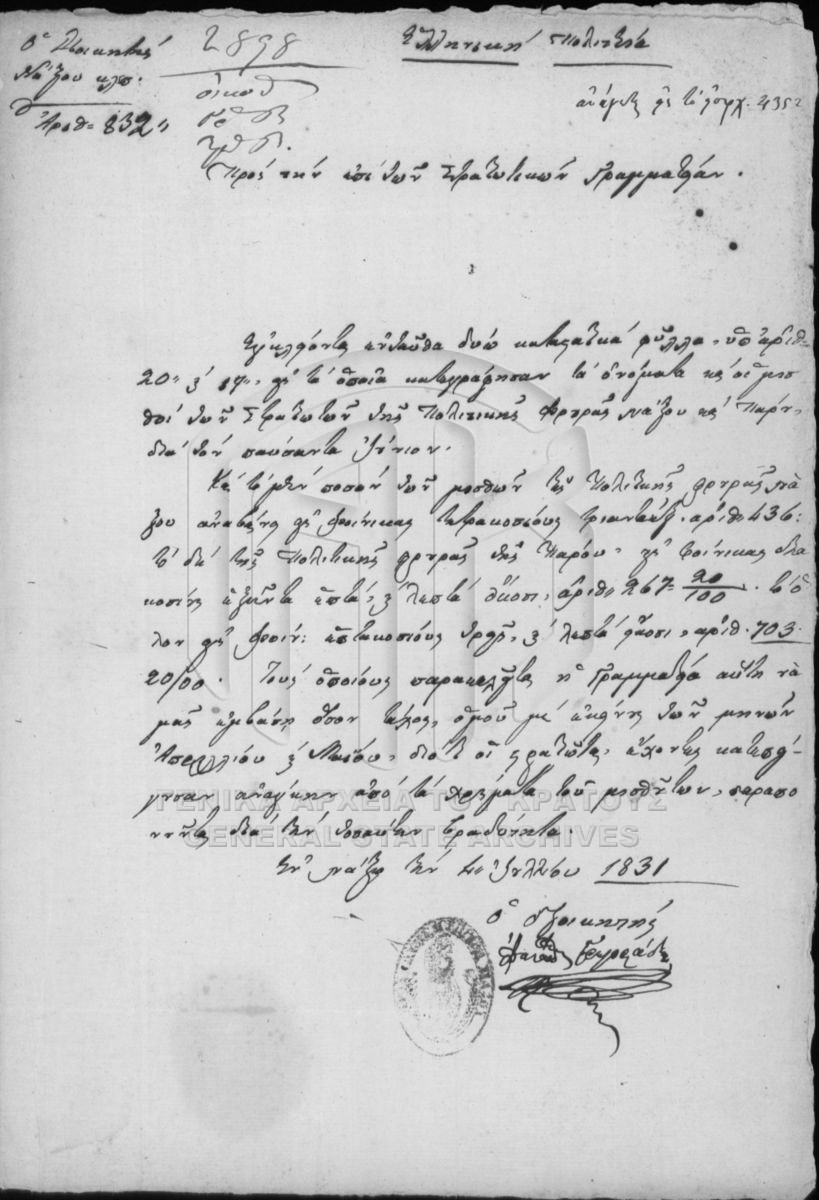 Ὁ Διοικητὴς
Νάξου κλπ.
Ἀριθ= 832"
2898
Ἑλληνικὴ Πολιτεία
Πρὸς τὴν ἐπὶ τῶν Στρατιωτικῶν Γραμματείαν.
Ἐγκλείονται ἐνταῦθα δύω καταστατικὰ φύλλα, ὑπ' ἀριθ=
20" καὶ εἰς τὰ ὁποῖα κατεγράφησαν τὰ ὀνόματα καὶ οἱ μισ
θοὶ τῶν Στρατιωτῶν τῆς Πολιτικῆς Φρουρᾶς Νάξου καὶ Πάρου,
διὰ τὸν παύσαντα Ἰούνιον.
Καὶ τὸ μὲν ποσὸν τῶν μισθῶν τῆς Πολιτικῆς φρουρᾶς Νά
ξου ἀναβαίνει εἰς φοίνικας τετρακοσίους τριανταέξ. ἀριθ. 436:
τὸ δὲ τῆς Πολιτικῆς φρουρᾶς τῆς Πάρου, εἰς φοίνικας δια
κοσίους ἑξῆντα ἑπτά, καὶ λεπτὰ εἴκοσι, ἀριθ. 267= 20/100. τὸ ὅ
λον εἰς φοίν: ἑπτακοσίους τρεῖς, καὶ λεπτὰ εἴκοσι, ἀριθ. 703
20/00. Τοὺς ὁποίους παρακαλεῖται ἡ Γραμματεία αὕτη νὰ
μᾶς ἐμβάσῃ ὅσον τάχος, ὁμοῦ μὲ ἐκείνους τῶν μηνῶν
Ἀπριλλίου καὶ Μαΐου, διότι οἱ στρατιῶται, ἔχοντες κατεπεί-
γουσαν ἀνάγκην ἀπὸ τὰ χρήματα τοῦ μισθοῦ των, παραπο
νοῦνται διὰ τὴν τοσαύτην βραδύτητα.
Ἐν Νάξῳ τὴν 4 Ἰουλίου 1831
Ὁ Διοικητὴς
ΓΕΝΙΚΑ ΑΡΧΕΙΑ ΤΟΥ ΚΡΑΤΟΥΣ
GENERAL STATE ARCHIVES